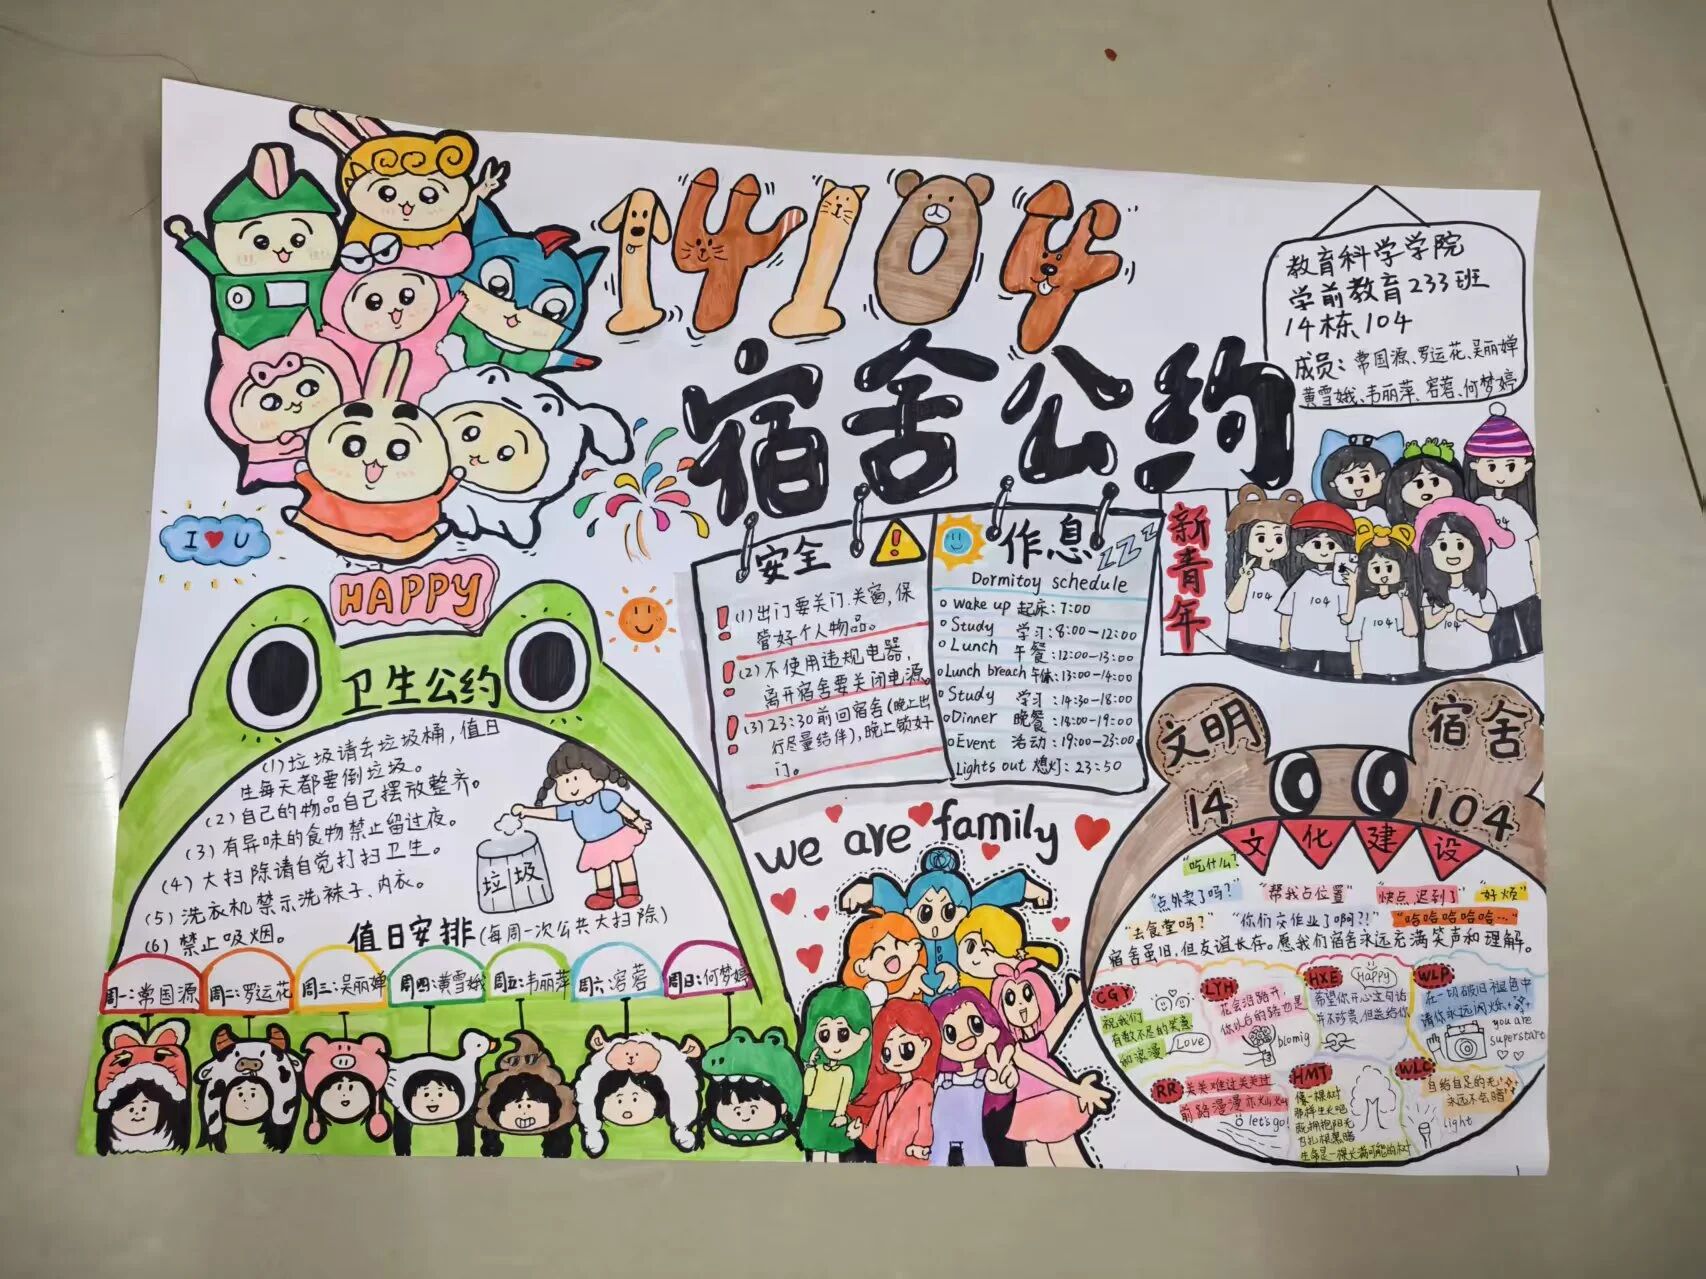 14104
宿舍公约
教育科学学院
学前教育233班
14栋104
成员：常国源、罗运花、吴丽婵
黄雪娥、韦丽萍、容蓉、何梦婷
I ♥ U
HAPPY
卫生公约
(1)垃圾请丢垃圾桶，值日
生每天都要倒垃圾。
(2)自己的物品自己摆放整齐。
(3)有异味的食物禁止留过夜。
(4)大扫除请自觉打扫卫生。
(5)洗衣机禁示洗袜子、内衣。
(6)禁止吸烟。
垃圾
值日安排(每周一次公共大扫除)
周一：常国源
周二：罗运花
周三：吴丽婵
周四：黄雪娥
周五：韦丽萍
周六：容蓉
周日：何梦婷
安全
(1)出门要关门、关窗，保
管好个人物品。
(2)不使用违规电器，
离开宿舍要关闭电源。
(3)23:30前回宿舍(晚上出
行尽量结伴)，晚上锁好
门。
作息
zzz
Dormitoy schedule
wake up 起床：7:00
Study 学习：8:00-12:00
Lunch 午餐：12:00-13:00
Lunch breach 午休：13:00-14:00
Study 学习：14:30-18:00
Dinner 晚餐：18:00-19:00
Event 活动：19:00-23:00
Lights out 熄灯：23:50
新青年
104
104
104
104
we are family
文明
宿舍
14
104
文化建设
“吃什么？
“点外卖了吗？”
“帮我占位置”
“快点，迟到了”
“好烦”
“去食堂吗？”
“你们交作业了啊?!”
“哈哈哈哈哈…”
宿舍虽旧，但友谊长存。愿我们宿舍永远充满笑声和理解。
CGY
祝我们
有数不尽的笑意
和浪漫
Love
LYH
花会沿路开，
你以后的路也是
blomig
HXE
Happy
希望你开心这句话
并不珍贵，但送给你
WLP
在一切破旧褪色中
请你永远闪烁
you are
superstart
RR
关关难过关关过
前路漫漫亦灿灿
let's go!
HMT
像一棵树
那样生长吧
既拥抱阳光
也扎根黑暗
生命是一棵长满可能的树
WLC
自给自足的光
永远不会暗
light